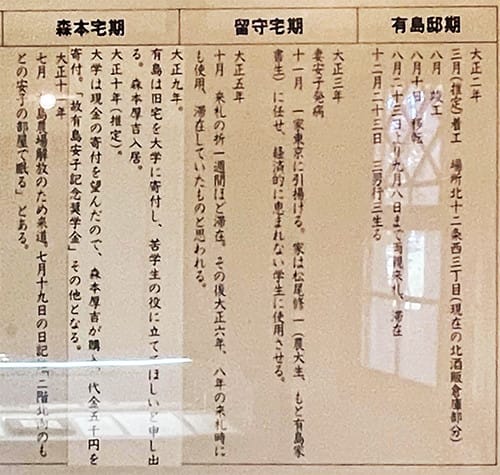 有島邸期
大正二年
三月(推定)着工 場所北十二条西三丁目(現在の北酒販倉庫部分)
八月 竣工
八月十日 移転
八月二十三日より九月八日まで両親来札、滞在
十二月二十三日 三男行三生る
留守宅期
大正三年
妻安子発病
十一月 一家東京に引揚げる。家は松尾修一(農大生、もと有島家
書生)に任せ、経済的に恵まれない学生に使用させる。
大正五年
十月 来札の折一週間ほど滞在。その後大正六年、八年の来札時に
も使用、滞在していたものと思われる。
森本宅期
大正九年。
有島は旧宅を大学に寄付し、苦学生の役に立ててほしいと申し出
る。 森本厚吉入居。
大正十年(推定)。
大学は現金の寄付を望んだので、森本厚吉が購入、代金五千円を
寄付。「故有島安子記念奨学金」その他となる。
大正十一年
七月 島農場解放のため来道。七月十九日の日記に「二階北向のも
との安子の部屋で眠る」とある。